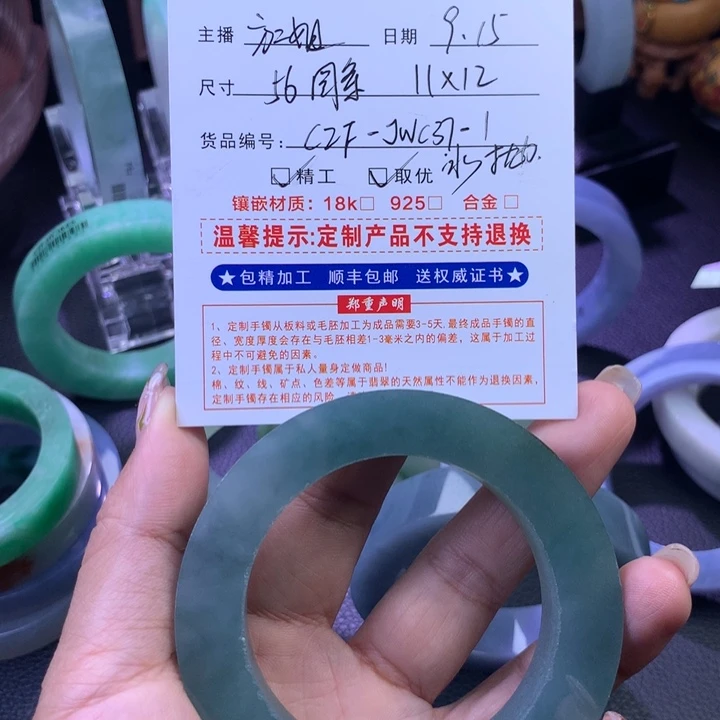 主播 方姐 日期 9.15
尺寸 56圆条 11X12
货品编号: CZF-JWC37-1
☑精工 ☑取优
镶嵌材质: 18k□ 925□ 合金□
温馨提示:定制产品不支持退换
★包精加工 顺丰包邮 送权威证书★
郑重声明
1、定制手镯从板料或毛胚加工为成品需要3-5天,最终成品手镯的直
径、宽度厚度会存在与毛胚相差1-3毫米之内的偏差，这属于加工过
程中不可避免的因素。
2、定制手镯属于私人量身定做商品!
棉、纹、线、矿点、色差等属于翡翠的天然属性不能作为退换因素，
定制手镯存在相应的风险